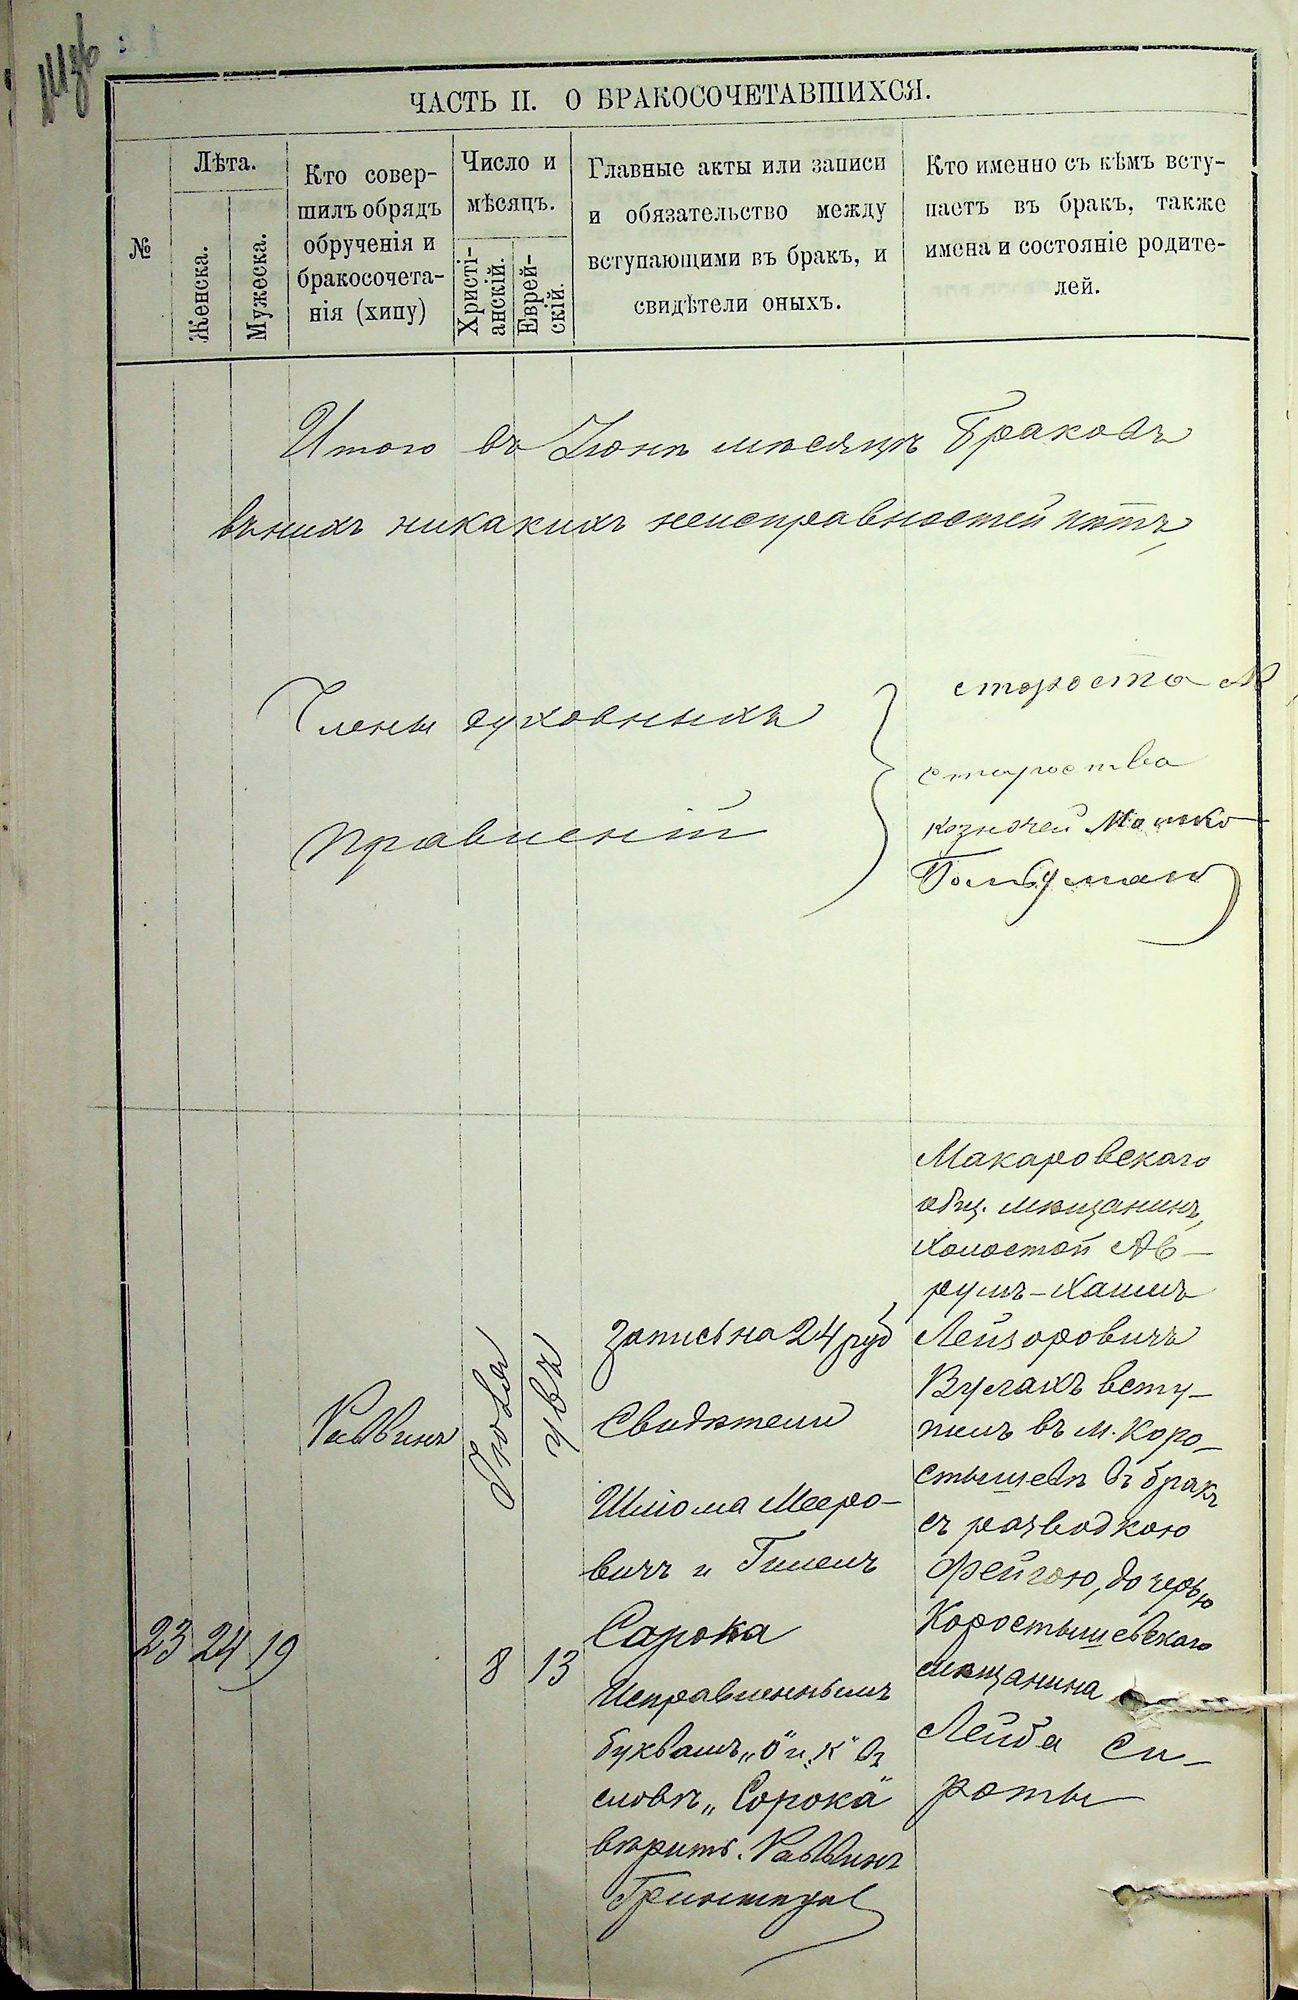 ЧАСТЬ II. О БРАКОСОЧЕТАВШИХСЯ.
№
Лѣта.
Женска.
Мужеска.
Кто совер-
шилъ обрядъ
обрученія и
бракосочета-
нія (хипу)
Число и
мѣсяцъ.
Христі-
анскій.
Еврей-
скій.
Главные акты или записи
и обязательство между
вступающими въ бракъ, и
свидѣтели оныхъ.
Кто именно съ кѣмъ всту-
паетъ въ бракъ, также
имена и состояніе родите-
лей.
Итого въ Іюнѣ мѣсяцѣ Браковъ
въ нихъ никакихъ неисправностей нѣтъ
Члены духовныхъ
правленій
староста
староста
казначей Мошко
23
24
19
Раввинъ
Іюля
8
13
Запись на 24 руб
Свидѣтели
Шлома Мееро-
вичъ и Гилелъ
Сорока
Исправленнымъ
буквамъ „о" и „к" въ
словѣ „Сорока"
вѣрить. Раввинъ
Макаровскаго
общ. мѣщанинъ,
холостой Ав-
румъ-Хаимъ
Лейзоровичъ
Вугахъ всту-
пилъ въ м. Коро-
стышевѣ въ бракъ
съ разводкою
Фейгою, дочерью
Коростышевскаго
мѣщанина
Лейба Си-
роты